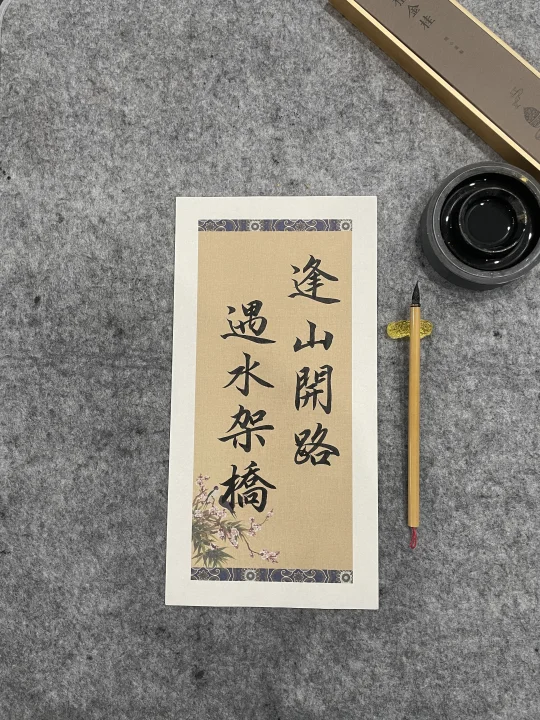 逢山開路
遇水架橋
金桂